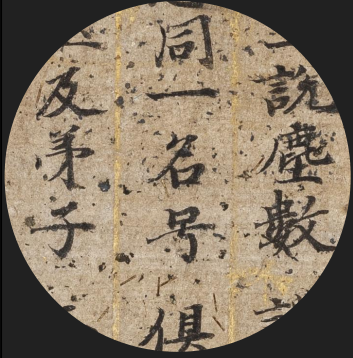 説塵數
同一名号俱
及弟子